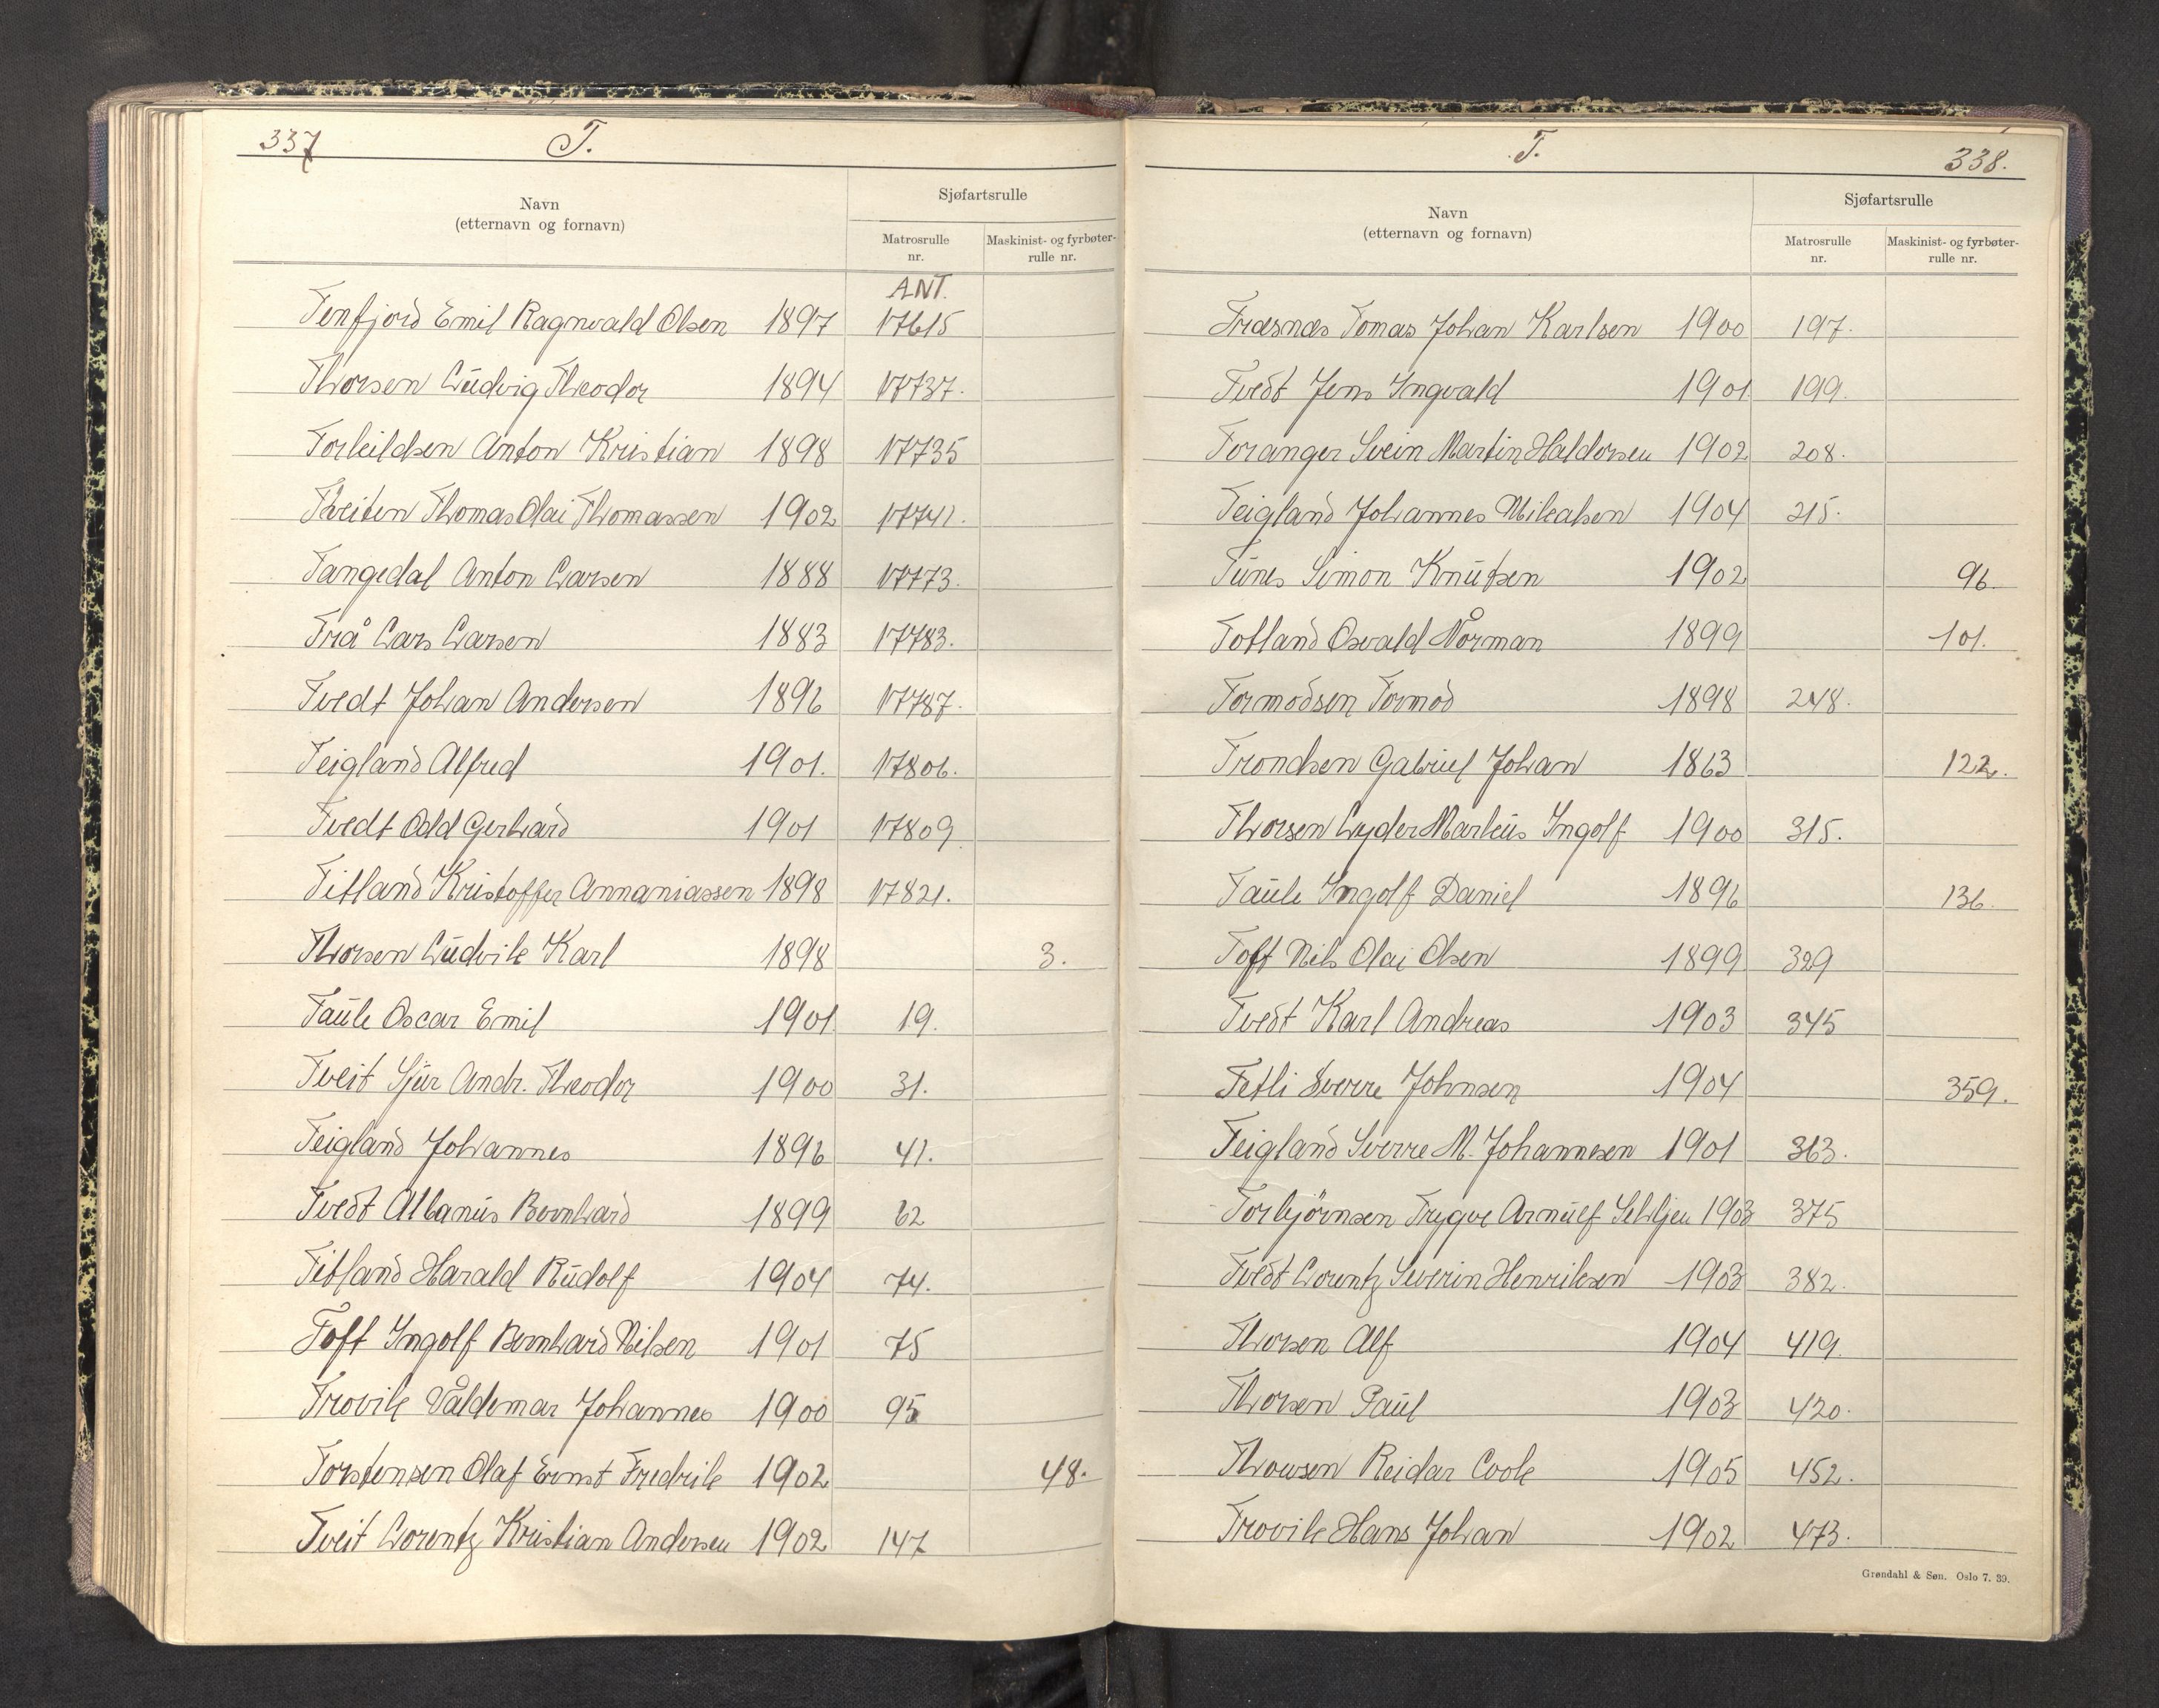 337
T.
Sjøfartsrulle
Navn
(etternavn og fornavn)
Matrosrulle nr.
Maskinist- og fyrbøter-rulle nr.
ANT.
Tenfjord Emil Ragnvald Olsen 1897 17615
Thorsen Ludvig Theodor 1894 17737.
Torkildsen Anton Kristian 1898 17735
Tveiten Thomas Olai Thomassen 1902 17741.
Tangedal Anton Larsen 1888 17773.
Trå Lars Larsen 1883 17783.
Tvedt Johan Andersen 1896 17787.
Teigland Alfred 1901. 17806.
Tvedt Odd Gerhard 1901 17809
Titland Kristoffer Annaniassen 1898 17821.
Thorsen Ludvik Karl 1898 3.
Taule Oscar Emil 1901 19.
Tveit Sjur Andr. Theodor 1900 31.
Teigland Johannes 1896 41.
Tvedt Albanus Bernhard 1899 62
Titland Harald Rudolf 1904 74.
Toft Ingolf Bernhard Nilsen 1901 75
Trovik Valdemar Johannes 1900 95
Torstensen Olaf Ernst Fredrik 1902 48.
Tveit Lorentz Kristian Andersen 1902 147
T.
338.
Sjøfartsrulle
Navn
(etternavn og fornavn)
Matrosrulle nr.
Maskinist- og fyrbøter-rulle nr.
Træsnæs Tomas Johan Karlsen 1900 197.
Tvedt Jens Ingvald 1901 199.
Toranger Svein Martin Haldorsen 1902 208.
Teigland Johannes Mikalsen 1904 215.
Tunes Simon Knutsen 1902 96.
Totland Osvald Norman 1899 101.
Tormodsen Tormod 1898 248.
Trondsen Gabriel Johan 1863 122.
Thorsen Lyder Markus Ingolf 1900 315.
Taule Ingolf Daniel 1896 136.
Toft Nils Olai Olsen 1899 329
Tvedt Karl Andreas 1903 345
Tetli Sverre Johnsen 1904 359.
Teigland Sverre M. Johannesen 1901 363.
Torbjörnsen Trygve Arnulf 1903 375
Tvedt Lorentz Severin Henriksen 1903 382.
Thorsen Alf 1904 419.
Thorsen Paul 1903 420.
Thowsen Reidar Cook 1905 452.
Trovik Hans Johan 1902 473.
Grøndahl & Søn. Oslo 7. 39.